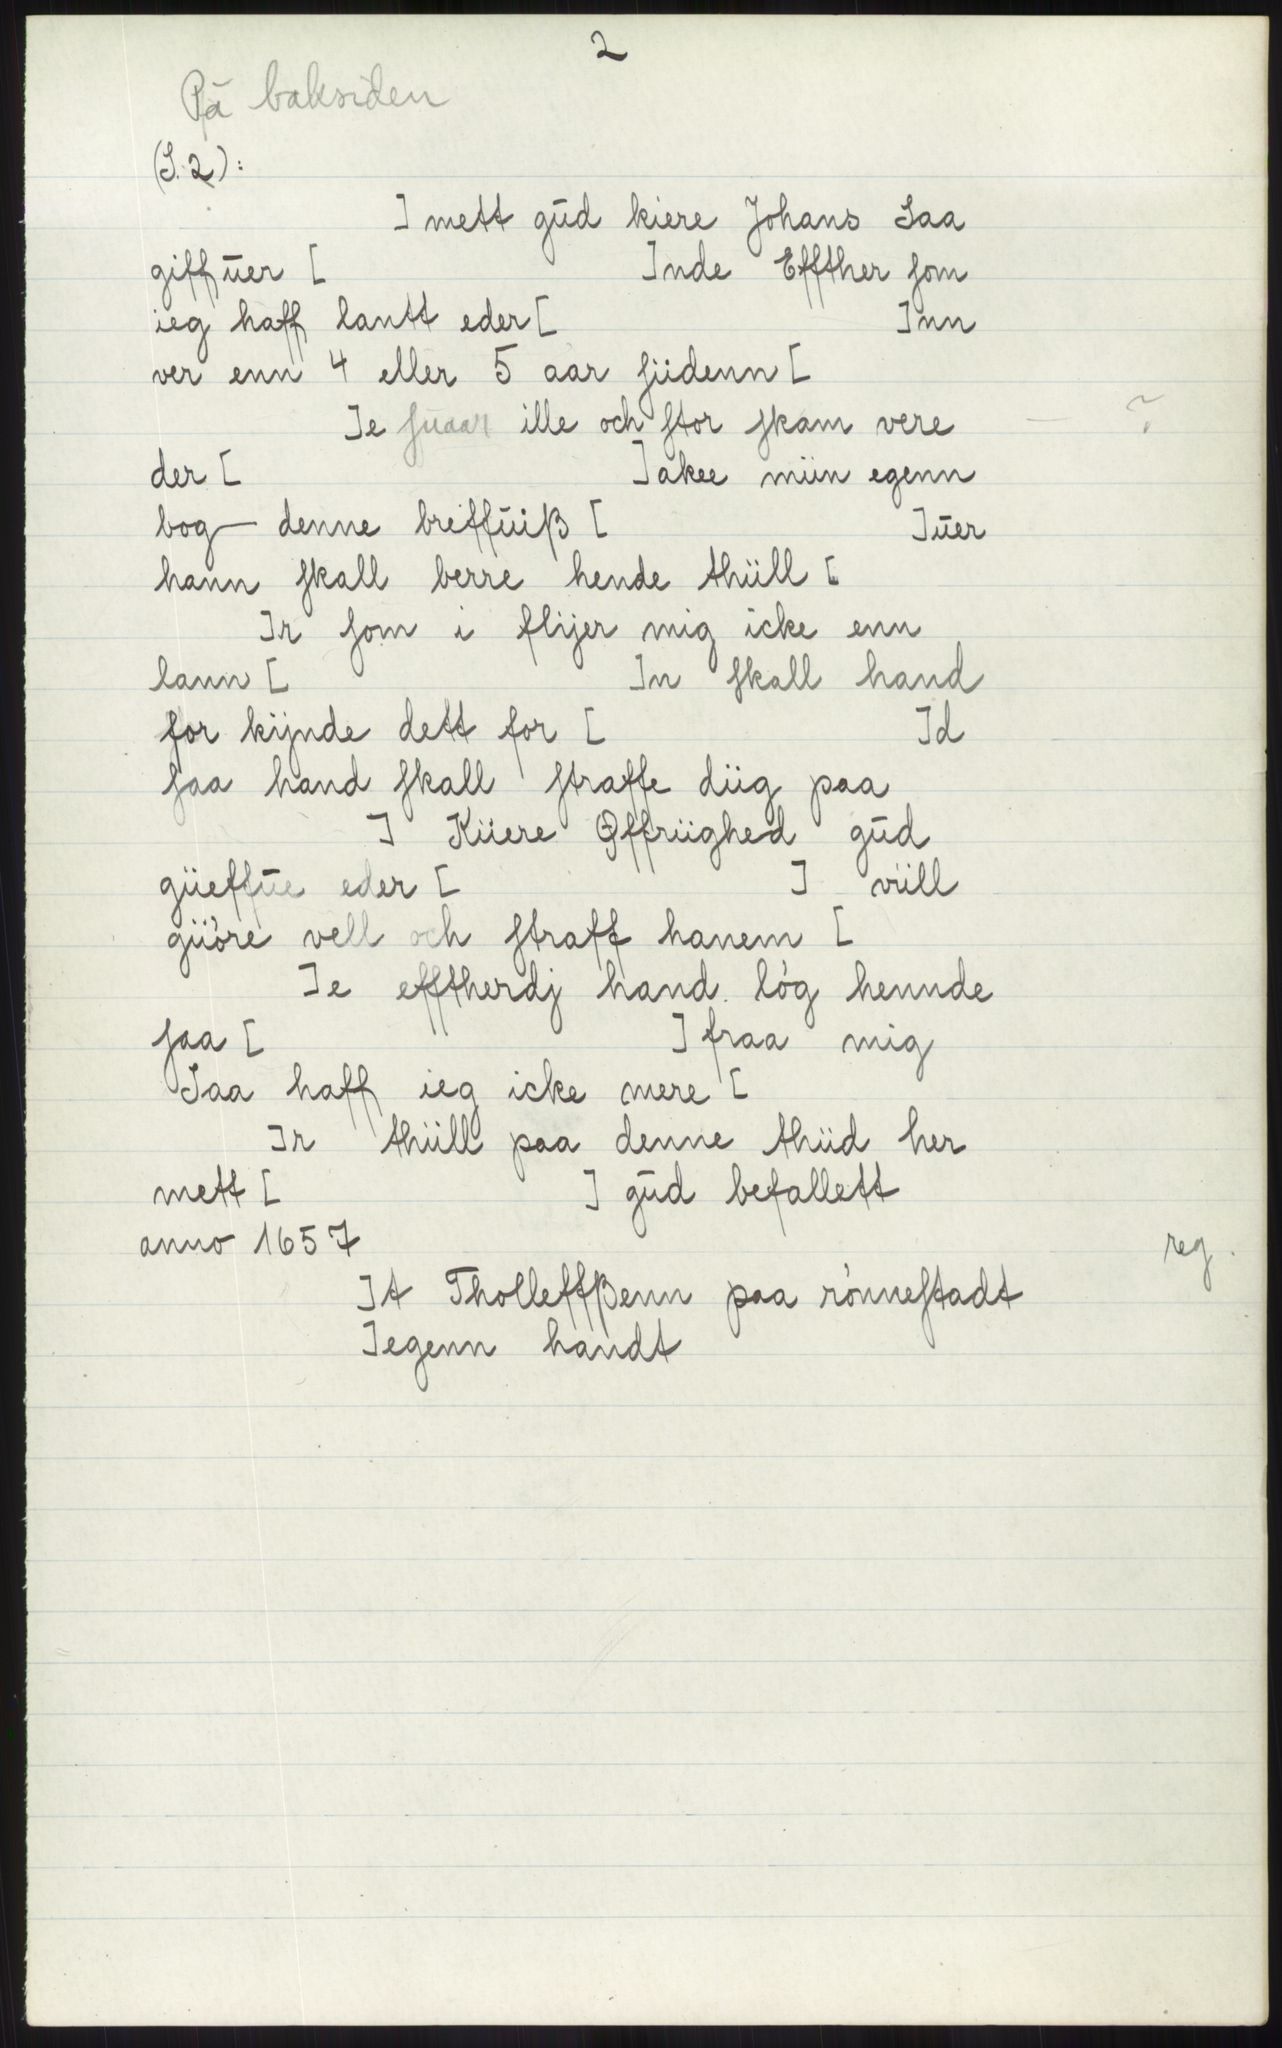 2
På baksiden
(S. 2):
] mett gūd kiere Johans Saa
giffūer [ ]nde Effther ſom
ieg haff lantt eder [ ]nn
ver enn 4 eller 5 aar ſiidenn [
]e ſuaar ille och ſtor ſkam vere ?
der [ ]akee miin egenn
bog denne breffūiß [ ]ūer
hann ſkall berre hende thiill [
]r ſom i flijer mig icke enn
lann [ ]n ſkall hand
for kijnde dett for [ ]d
ſaa hand ſkall ſtraffe diig paa
] Kiiere Øffriighed gūd
giieffūe eder [ ] viill
giiöre vell och ſtraff hanem [
]e efftherdj hand lög hennde
ſaa [ ] fraa mig
Saa haff ieg icke mere [
]r thiill paa denne thiid her
mett [ ] gūd befallett
anno 1657 reg.
]t Tholleffßenn paa rönneſtadt
]egenn handt